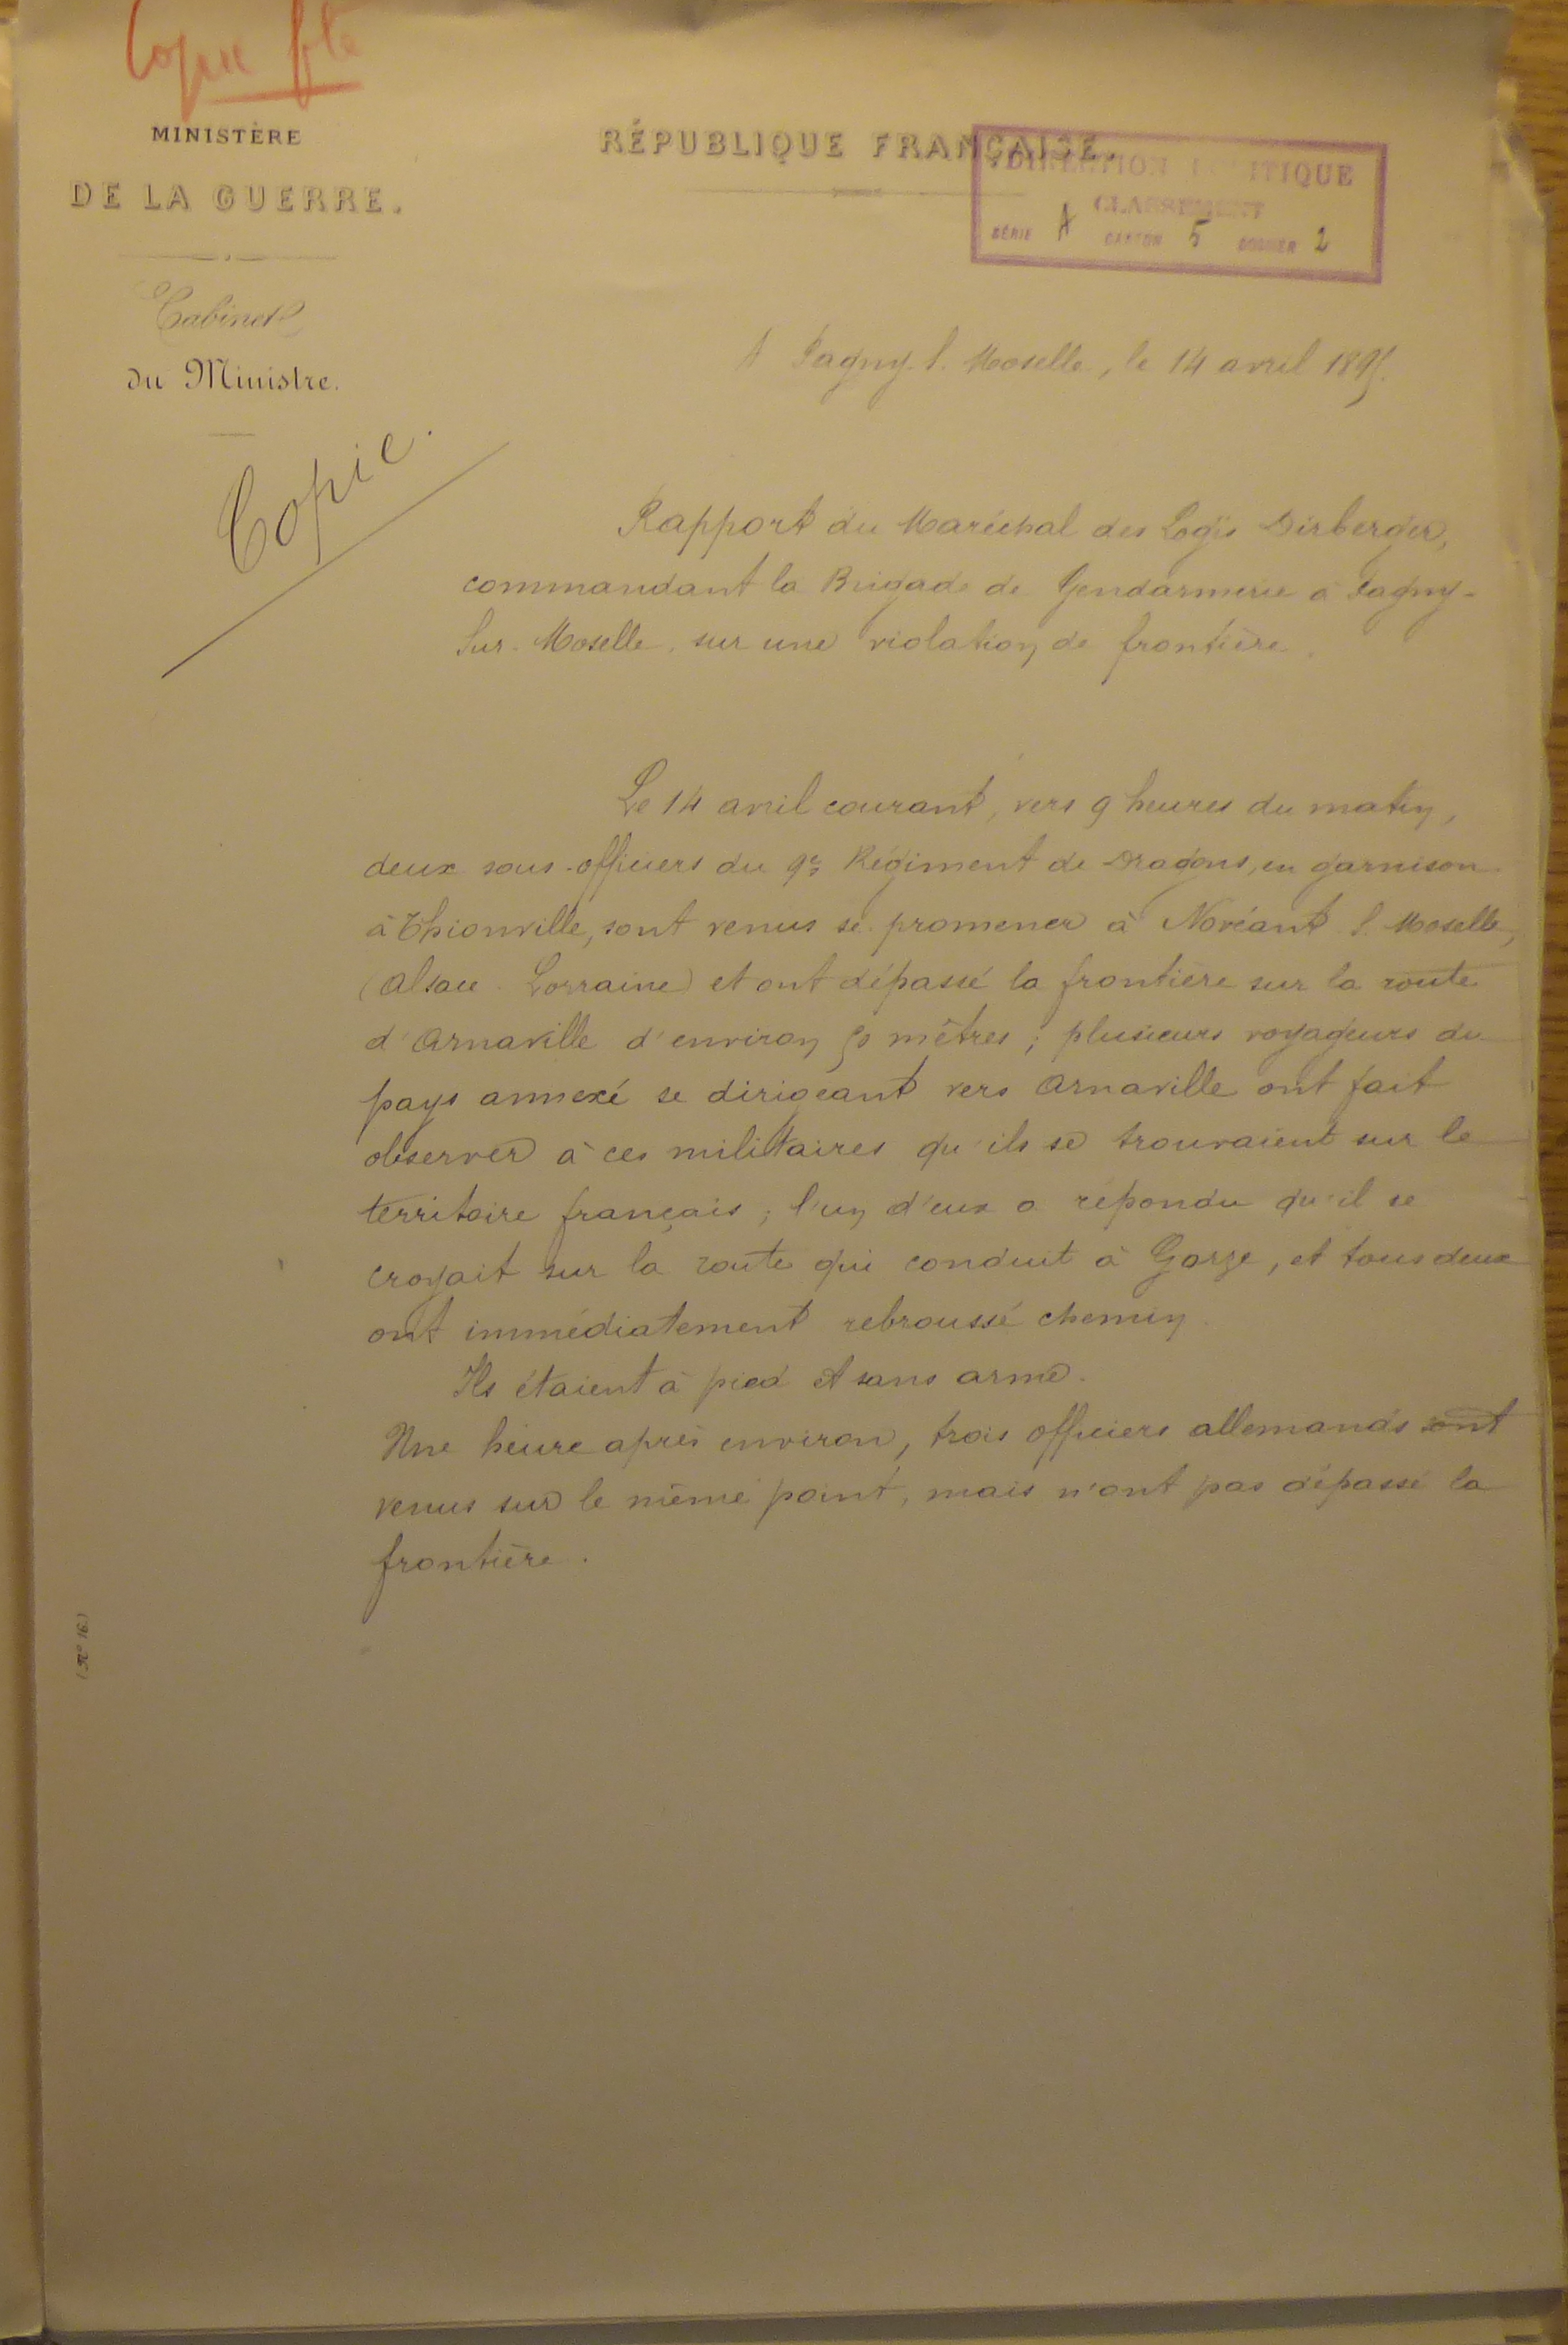 Copie fte
MINISTÈRE
DE LA GUERRE.
Cabinet
du Ministre.
Copie.
RÉPUBLIQUE FRANÇAISE.
DIRECTION POLITIQUE
CLASSEMENT
SÉRIE A CARTON 5 DOSSIER 2
A Pagny s. Moselle, le 14 avril 1895.
Rapport du Maréchal des Logis Dirberger,
commandant la Brigade de Gendarmerie à Pagny-
Sur-Moselle, sur une violation de frontière.
Le 14 avril courant, vers 9 heures du matin,
deux sous-officiers du 9e Régiment de Dragons, en garnison
à Thionville, sont venus se promener à Novéant s. Moselle,
(Alsace-Lorraine) et ont dépassé la frontière sur la route
d'Arnaville d'environ 50 mètres ; plusieurs voyageurs du
pays annexé se dirigeant vers Arnaville ont fait
observer à ces militaires qu'ils se trouvaient sur le
territoire français ; l'un d'eux a répondu qu'il se
croyait sur la route qui conduit à Gorze, et tous deux
ont immédiatement rebroussé chemin.
Ils étaient à pied et sans arme.
Une heure après environ, trois officiers allemands sont
venus sur le même point, mais n'ont pas dépassé la
frontière.
(N° 16)